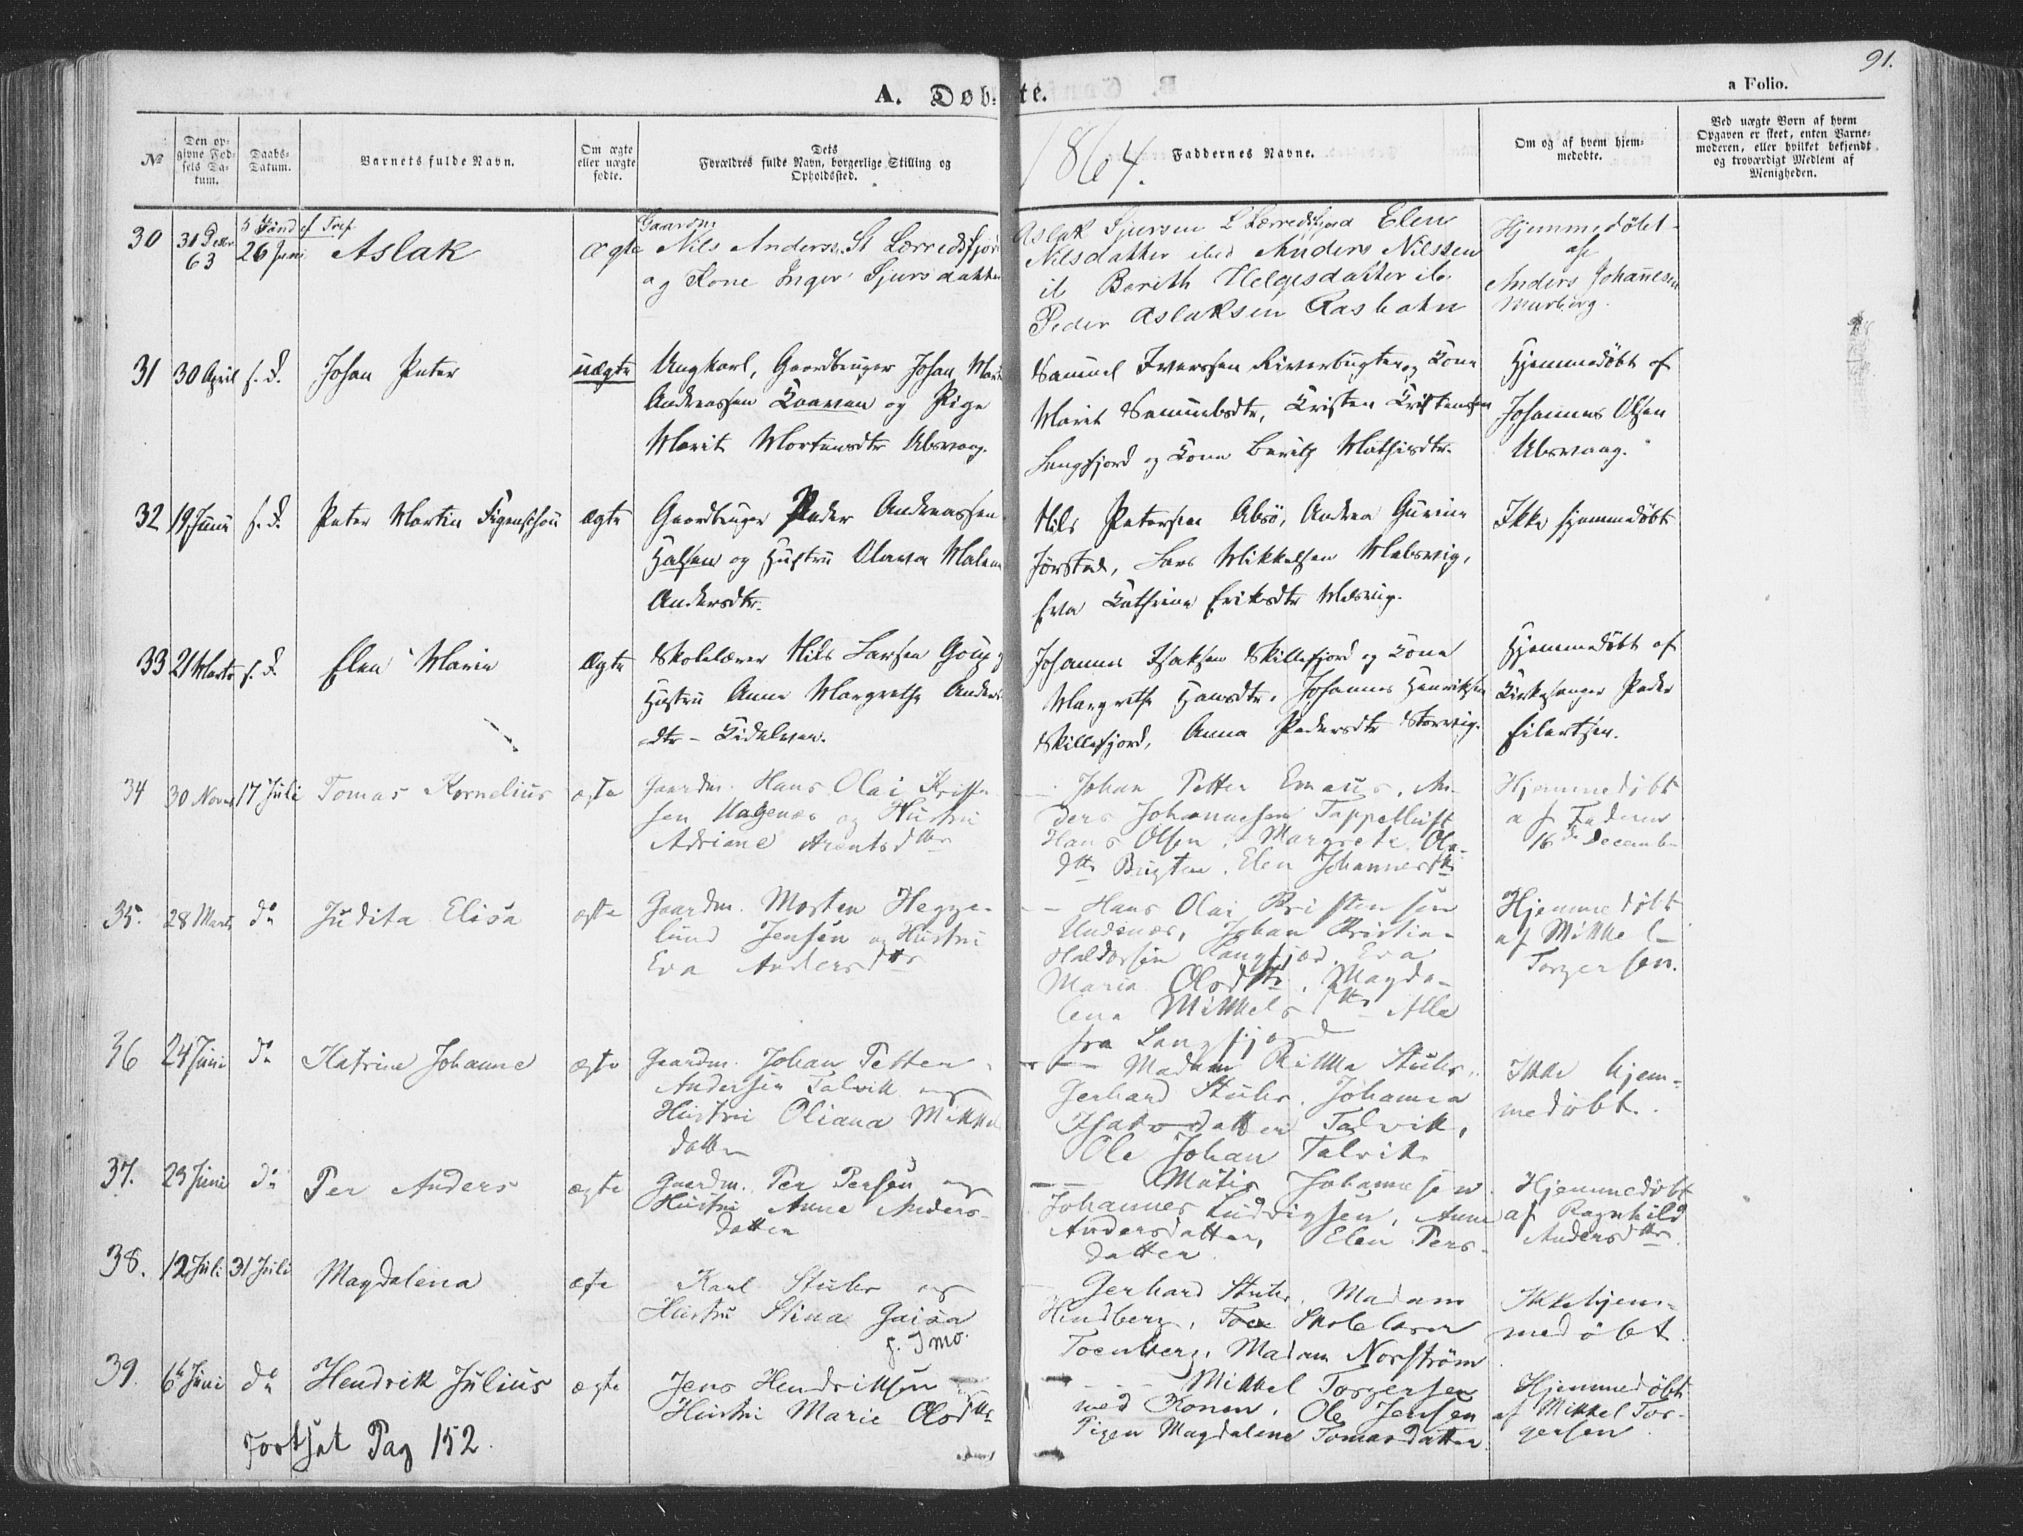 91.
A. Døbte.
a Folio.
1864.
No
Den opgivne Fødsels Datum.
Daabs-Datum.
Barnets fulde Navn.
Om ægte eller uægte fødte.
Dets Forældres fulde Navn, borgerlige Stilling og Opholdssted.
Faddernes Navne.
Om og af hvem hjemmedøbte.
Ved uægte Børn af hvem Opgaven er skeet, enten Barnemoderen, eller hvilket bekjendt og troværdigt Medlem af Menigheden.
30
31 Decbr 63
26 Juni
Aslak
ægte
Gaardm
Nils Anderss. St Lerredsfjor
og Kone Inger Sjursdatter
Aslak Sjursen L Lerredsfjord Elen
Nilsdatter ibid Anders Nilssen
ib Berith Helgesdatter ib.
Peder Aslaksen Rasbotn
Hjemmedøbt
af
Anders Johannesen
31
30 April
s. D.
Johan Peter
uægte
Ungkarl, Gaardbruger Johan
Andreassen Kaaven og Pige
Marit Mortensdtr
Samuel Iverssen og Kone
Marit Samuelsdtr, Kristen Kristensen
Langfjord og Kone Berith Mathisdtr.
Hjemmedøbt af
Johannes Olsen
32
19 Juni
s. D.
Peter Martin
ægte
Gaardbruger Peder Andreassen
Halsen og Hustru Olava
Andersdtr.
Nils Petersen Andrea Gurine
Jørstad, Lars Mikkelsen
Eva Cathrine Eriksdtr
Ikke hjemmedøbt
33
21 Marts
s. D.
Elen Marie
ægte
Skolelærer Nils Larsen
Hustru Anne Margrethe Anders
dtr
Johannes Isaksen Skillefjord og Kone
Margrethe Hansdtr, Johannes Henriksen
Skillefjord, Anna Pedersdtr Storvig.
Hjemmedøbt af
Kirkesanger Peder
Eilertsen.
34
30 Novbr
17 Juli
Tomas Kornelius
ægte
Gaardm. Hans Olai Kristen
sen og Hustru
Adriane Arentsdttr
Johan Petter Emaus, An-
ders Johannesen Tappelluft
Hans Olsen, Margrete Ols-
dttr Bugten, Elen Johannesdttr
Hjemmedøbt
af Faderen
16de Decemb
35.
28 Marts
do
Judita Elisa
ægte
Gaardm. Morten Hegge-
lund Jensen og Hustru
Eva Andersdttr
Hans Olai Kristensen
Johan Kristian
Haldorsen Langfjord, Eva
Maria Olsdttr, Magda-
lena Mikkelsdttr Alle
fra Langfjord
Hjemmedøbt
af Mikkel
Torgersen.
36
24 Juni
do
Katrine Johanne
ægte
Gaardm. Johan Petter
Andersen Talvik og
Hustru Oliana Mikkels
datter
Madam Rikka Stuhr,
Gerhard Stuhr, Johanna
Isaksdatter Talvik,
Ole Johan Talvik
Ikke hjem-
medøbt.
37.
23 Juni
do
Per Anders
ægte
Gaardm. Per Persen og
Hustru Anne Anders-
datter
Matis Johannesen
Johannes Ludvigsen, Anne
Andersdatter, Elen Pers-
datter
Hjemmedøbt
af Ragnhild
Andersdttr
38.
12 Juli
31 Juli
Magdalena
ægte
Karl Stuhr og
Hustru Stina Gaisa
Gerhard Stuhr, Madam
Hindberg, Skolelærer
Toenberg, Madam Norström
Ikke hjem-
medøbt
39.
6te Juni
do
Hendrik Julius
ægte
Jens Hendriksen og
Hustru Marie Olsdttr
Mikkel Torgersen
med Konen, Ole Jensen
Pigen Magdalene Tomasdatter
Hjemmedøbt
af Mikkel Tor-
gersen
Fortsat Pag 152.